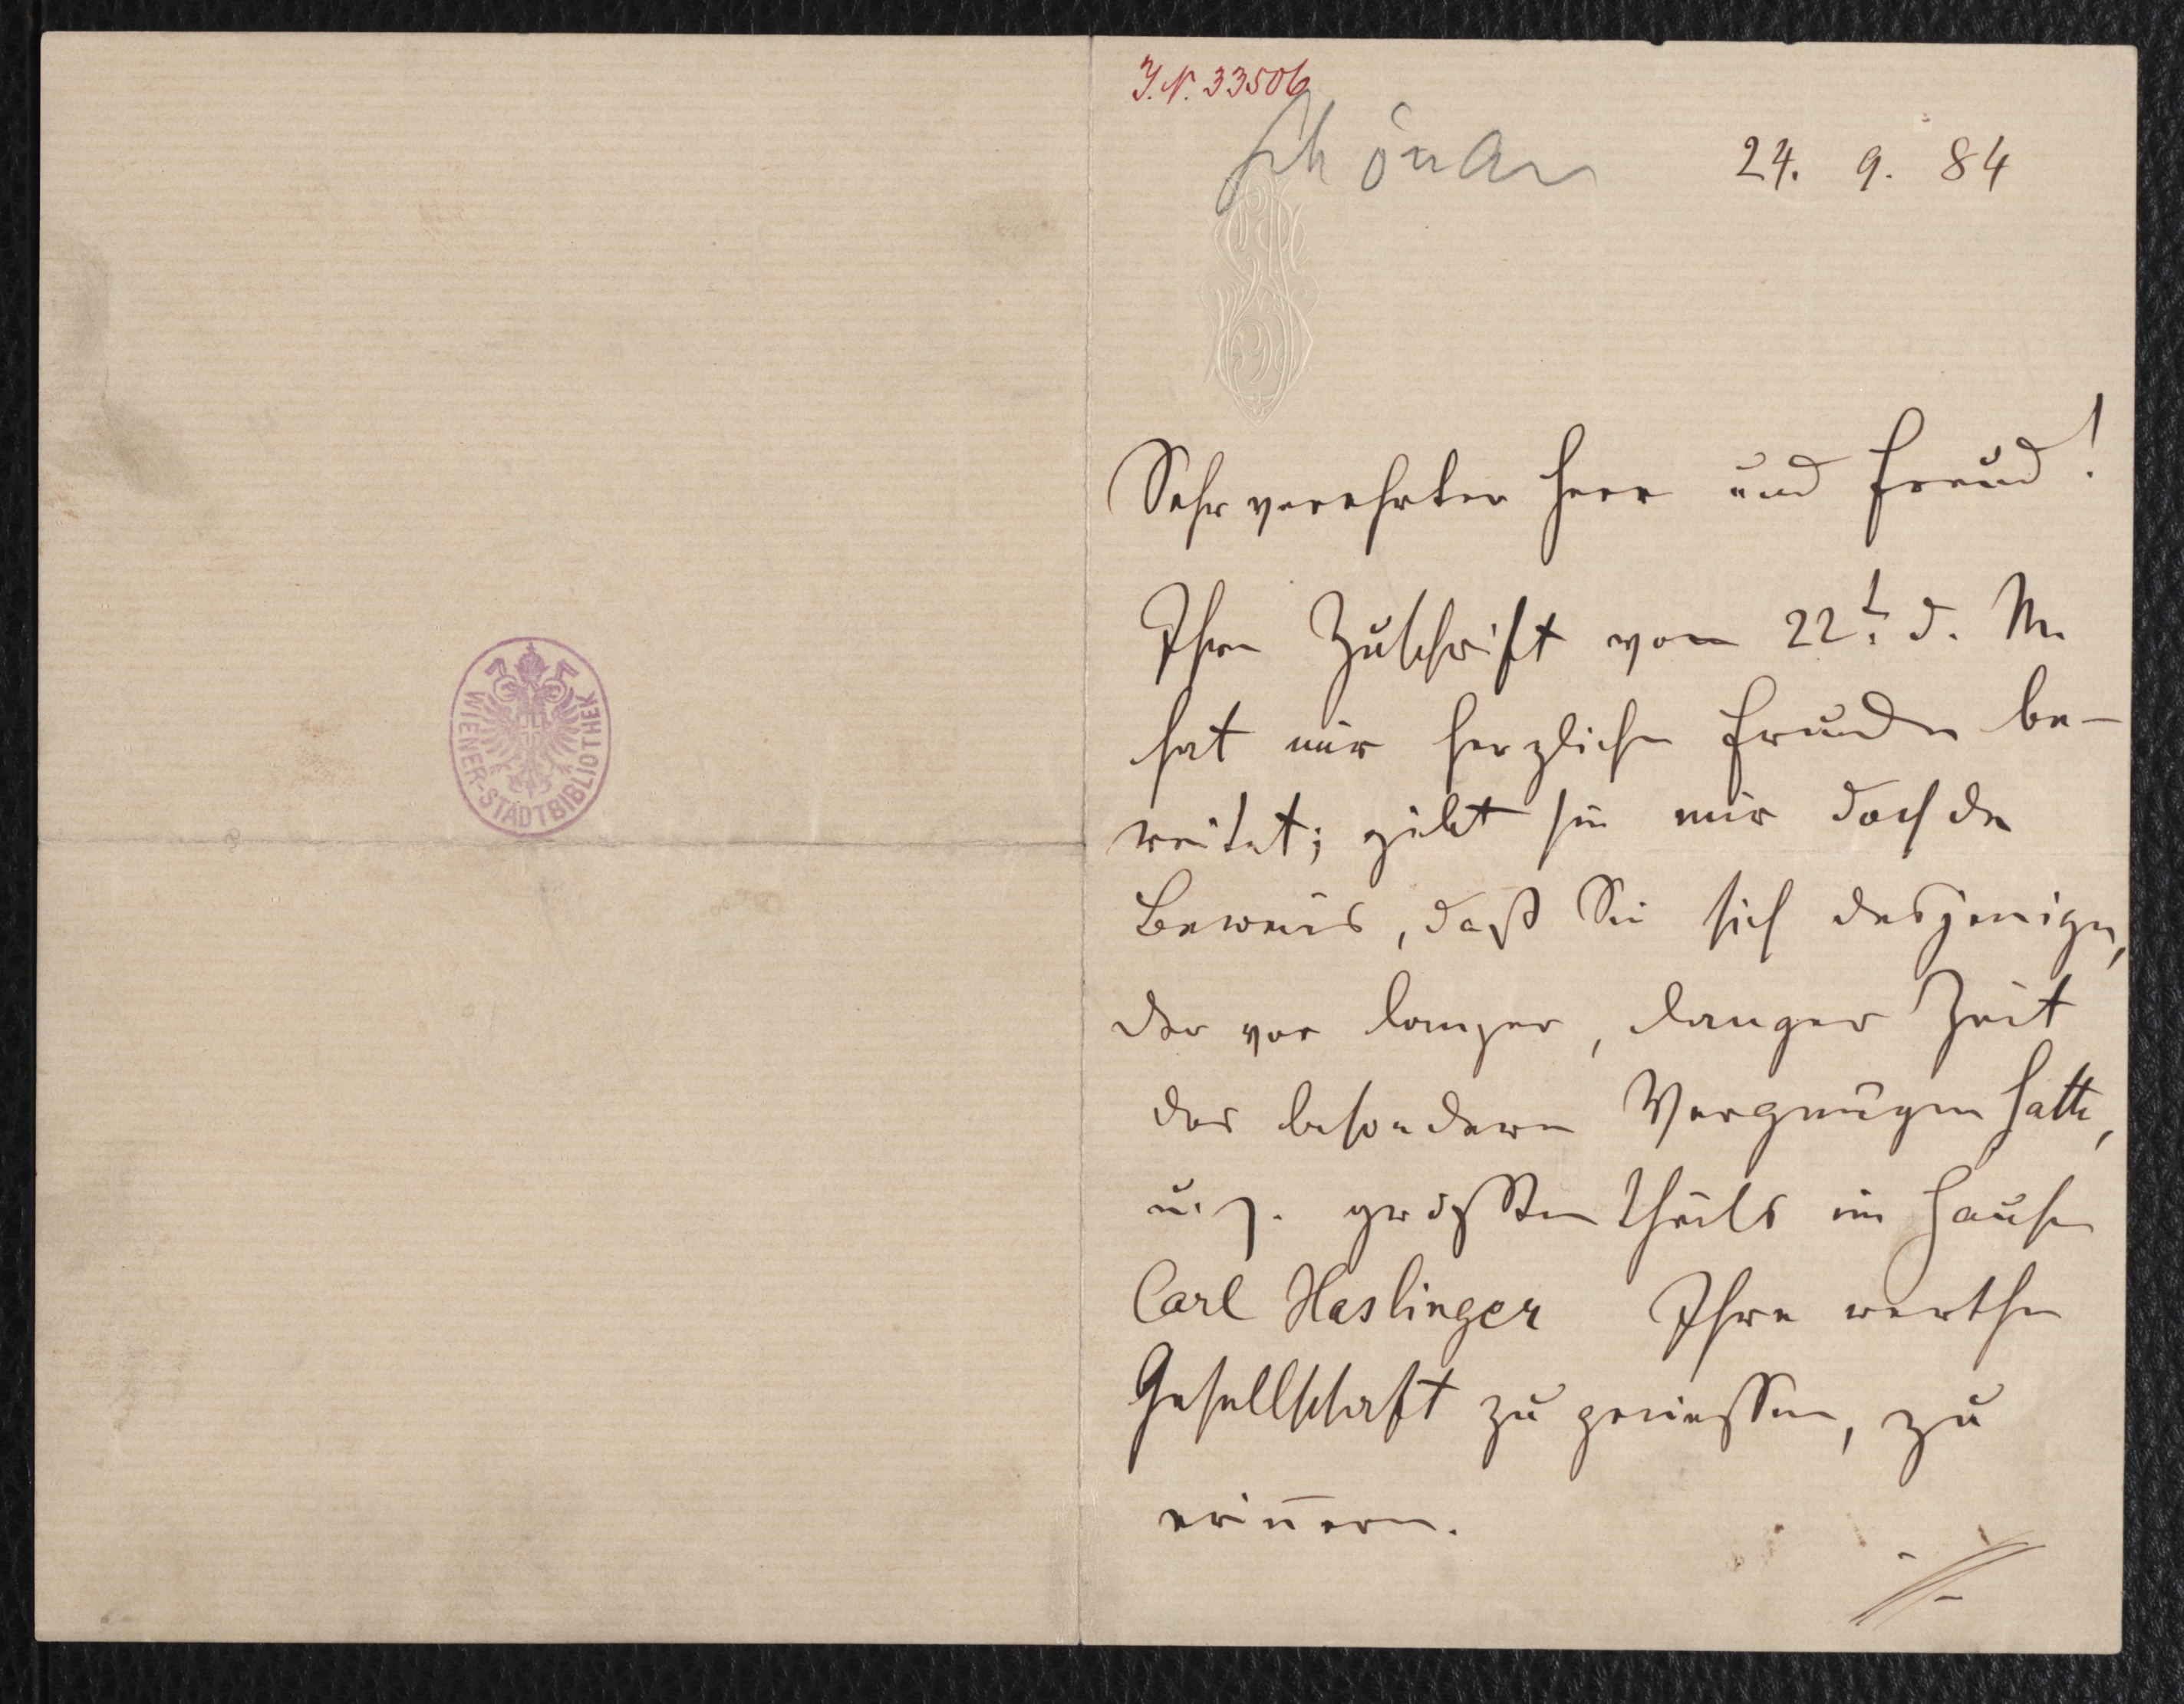 WIENER-STADTBIBLIOTHEK
J.N. 33506
Schönau
24. 9. 84
Sehr verehrter Herr und Freund!
Ihre Zuschrift vom 22t. d. M.
hat mir herzliche Freude be-
reitet; gibt sie mir doch den
Beweis, daß Sie sich desjenigen,
der vor langer, langer Zeit
das besondere Vergnügen hatte,
u. z. größten theils im Hause
Carl Haslinger Ihre werthe
Gesellschaft zu genießen, zu
erin̄ern.